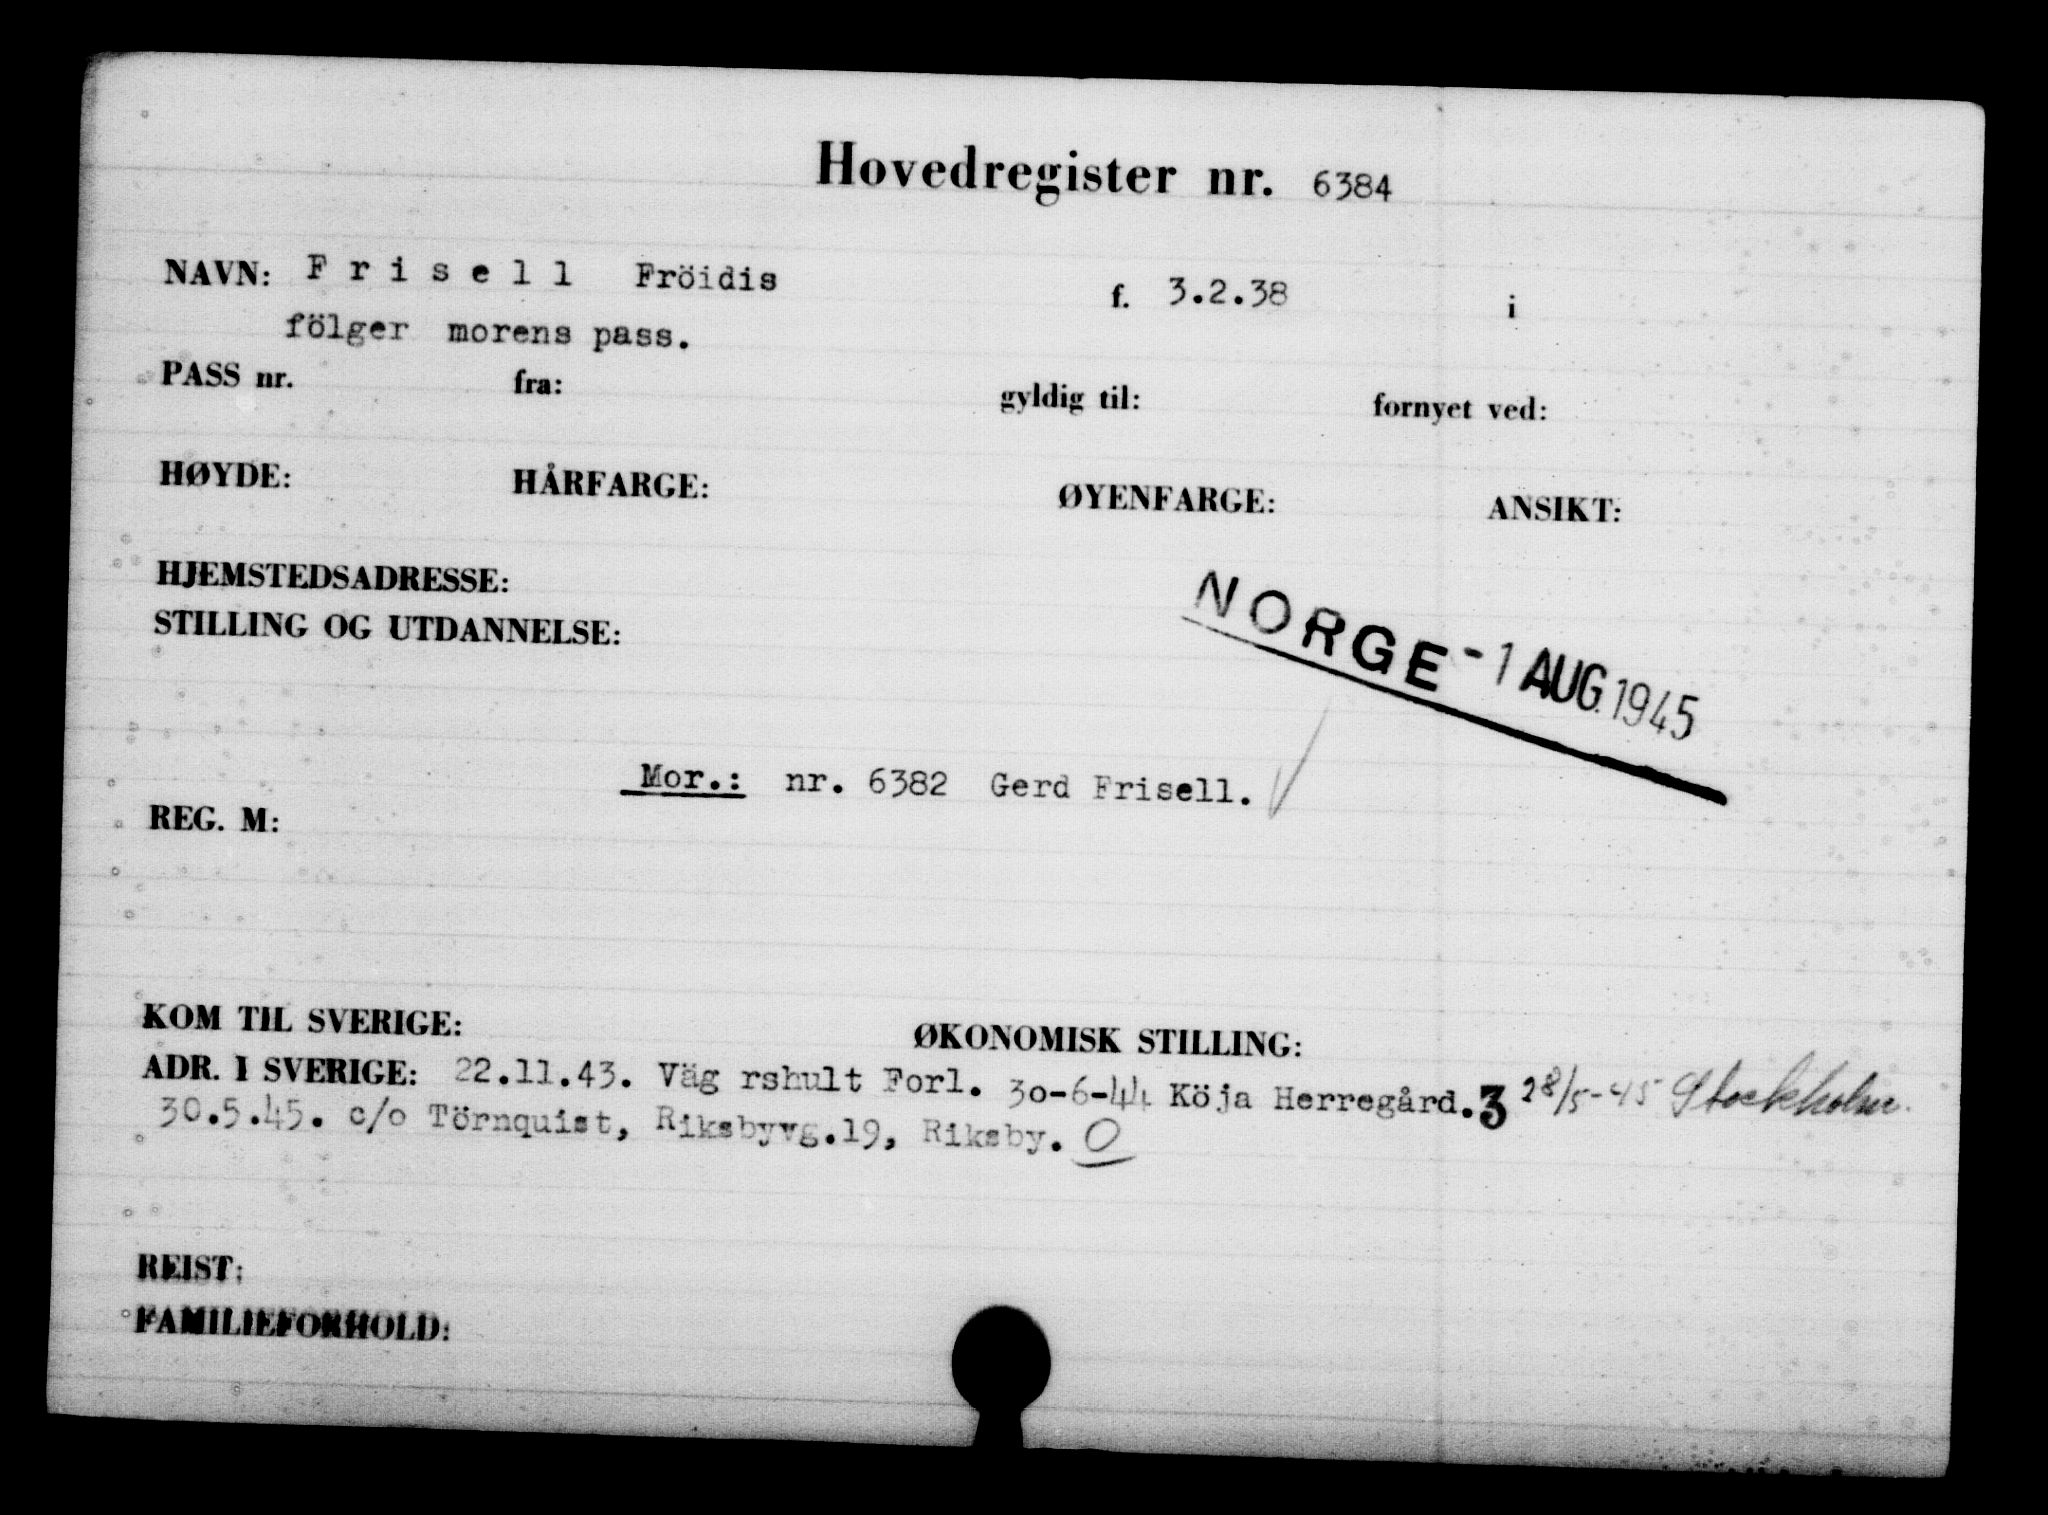 Hovedregister nr. 6384
NAVN: F r i s e l l Fröidis f. 3.2.38 i
fölger morens pass.
PASS nr. fra: gyldig til: fornyet ved:
HØYDE: HÅRFARGE: ØYENFARGE: ANSIKT:
HJEMSTEDSADRESSE:
STILLING OG UTDANNELSE:
NORGE - 1 AUG. 1945
Mor.: nr. 6382 Gerd Frisell.
REG. M:
KOM TIL SVERIGE: ØKONOMISK STILLING:
ADR. I SVERIGE: 22.11.43. Väg rshult Forl. 30-6-44 Köja Herregård. 3 28/5-45 Stockholm.
30.5.45. c/o Törnquist, Riksbyvg.19, Riksby. O
REIST:
FAMILIEFORHOLD: